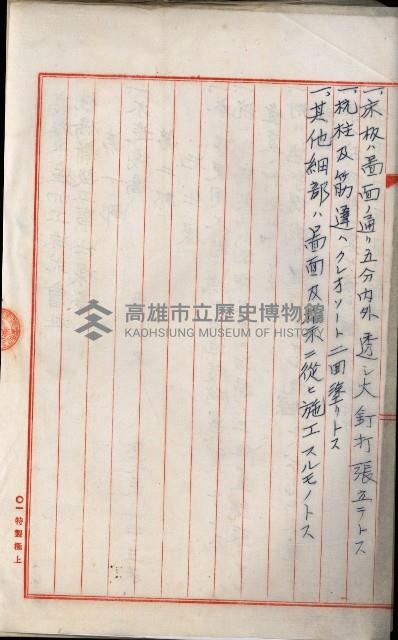 一、床板ハ畾面ノ通リ五分内外透シ大釘打張立テトス
一、杭柱及筋違ハクレオソート二回塗リトス
一、其他細部ハ畾面及指示ニ從ヒ施工スルモノトス
高雄市立歷史博物館
KAOHSIUNG MUSEUM OF HISTORY
〇一特製極上